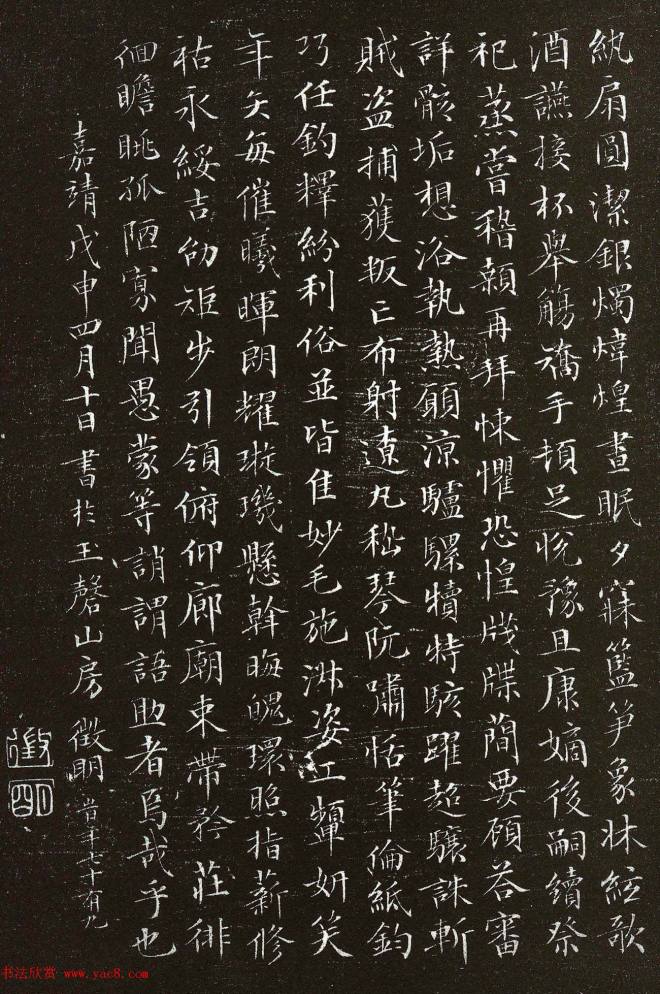 紈扇圓潔銀燭煒煌晝眠夕寐籃笋象牀絃歌
酒讌接杯舉觴矯手頓足悅豫且康嫡後嗣續祭
祀蒸嘗稽顙再拜悚懼恐惶牋牒蕳要顧荅審
詳骸垢想浴執熱願涼驢騾犢特駭躍超驤誅斬
賊盗捕獲叛亡布射遼丸嵇琴阮嘯恬筆倫紙鈞
巧任釣釋紛利俗並皆佳妙毛施淑姿工顰妍笑
年矢每催曦暉朗耀璇璣懸斡晦魄環照指薪修
祜永綏吉劭矩步引領俯仰廊廟束帶矜莊徘
徊瞻眺孤陋寡聞愚蒙等誚謂語助者焉哉乎也
嘉靖戊申四月十日書於玉磬山房 徵明 旹年七十有九
徵明
书法欣赏 www.yac8.com